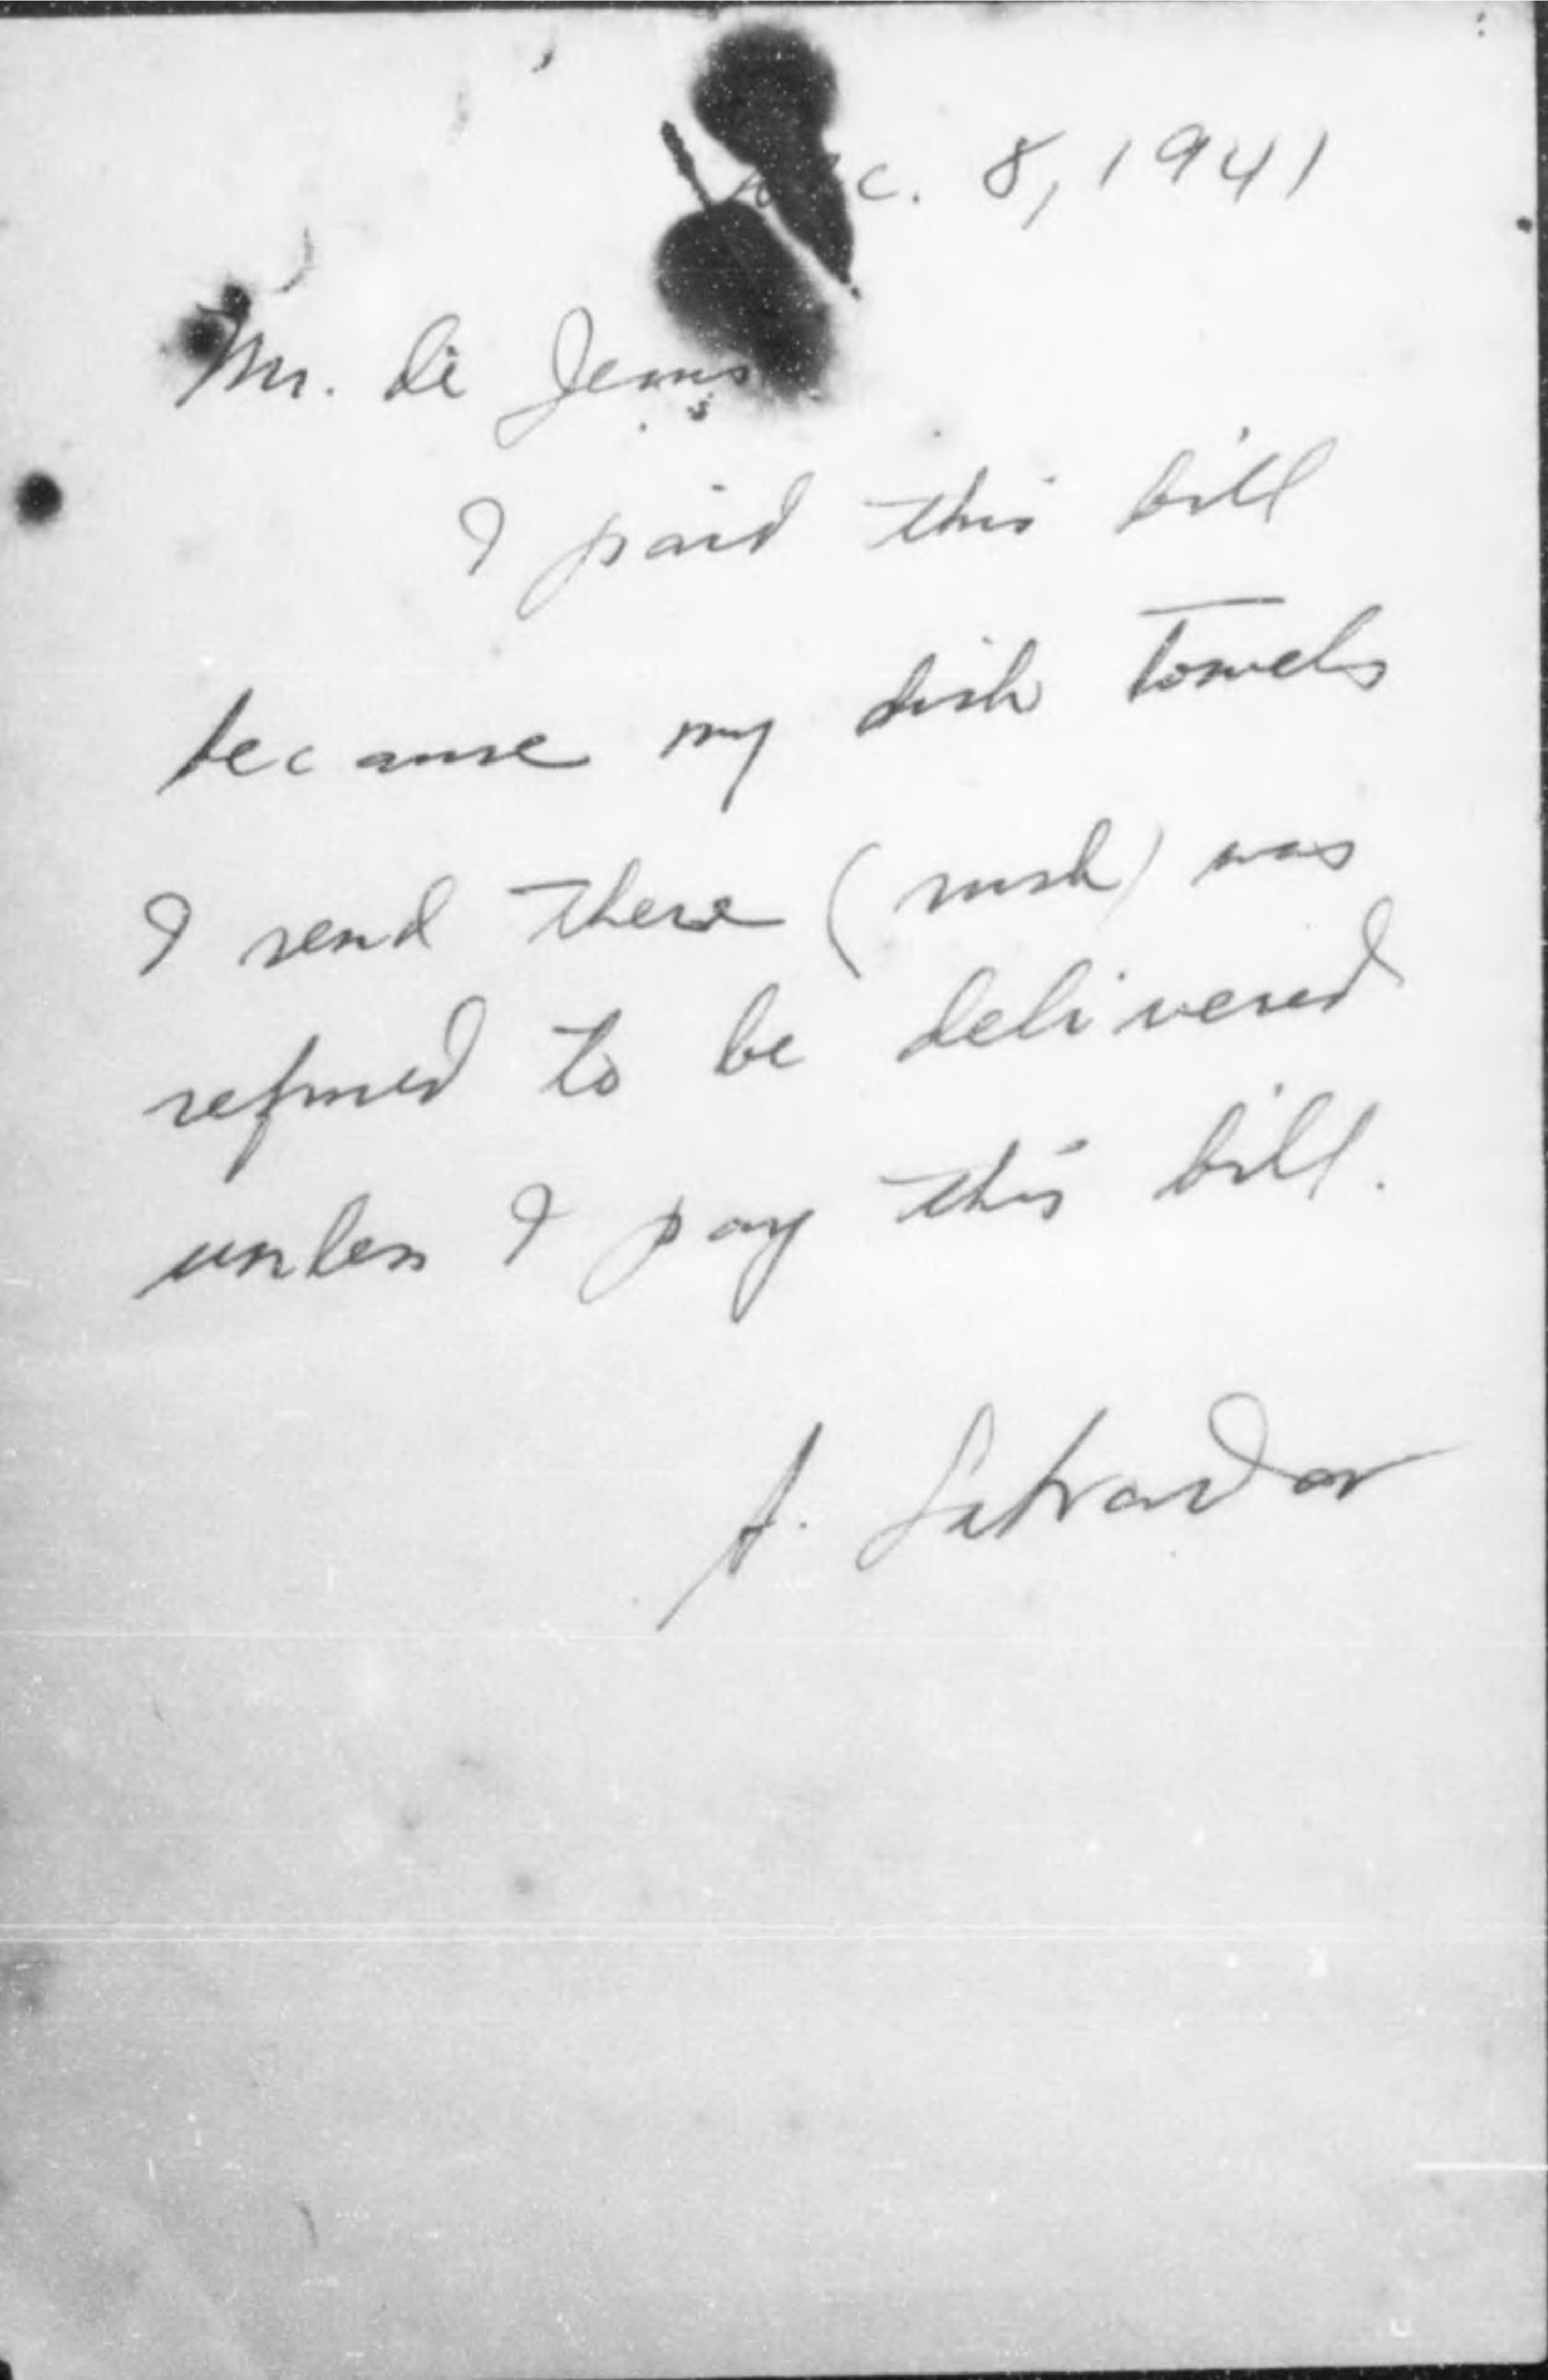 Dec. 8, 1941
Mr. de Jesus
I paid this bill
because my dish towels
I send there (rush) was
refused to be delivered
unless I pay this bill.
A. Salvador